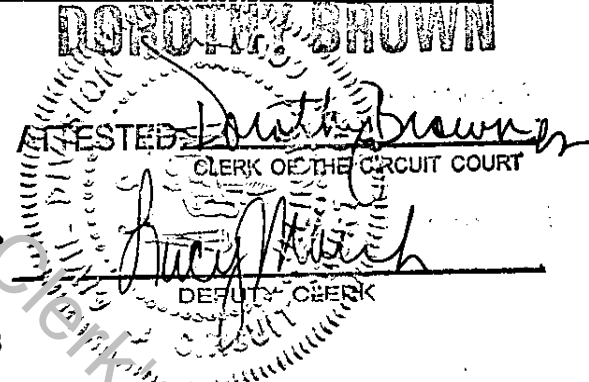 DOROTHY BROWN
ATTESTED Dorothy Brown
CLERK OF THE CIRCUIT COURT
DEPUTY CLERK
Clerk's
DIVISION
CIRCUIT